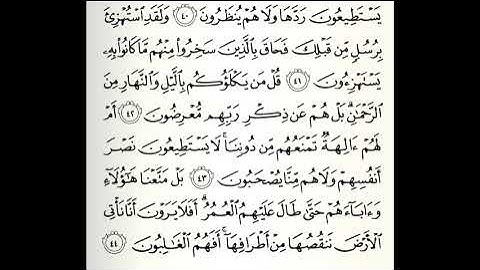 يَسْتَطِيعُونَ رَدَّهَا وَلَا هُمْ يُنظَرُونَ ٤٠ وَلَقَدِ ٱسْتُهْزِئَ
بِرُسُلٍ مِّن قَبْلِكَ فَحَاقَ بِٱلَّذِينَ سَخِرُوا۟ مِنْهُم مَّا كَانُوا۟ بِهِۦ
يَسْتَهْزِءُونَ ٤١ قُلْ مَن يَكْلَؤُكُم بِٱلَّيْلِ وَٱلنَّهَارِ مِنَ
ٱلرَّحْمَٰنِ ۗ بَلْ هُمْ عَن ذِكْرِ رَبِّهِم مُّعْرِضُونَ ٤٢ أَمْ
لَهُمْ ءَالِهَةٌ تَمْنَعُهُم مِّن دُونِنَا ۚ لَا يَسْتَطِيعُونَ نَصْرَ
أَنفُسِهِمْ وَلَا هُم مِّنَّا يُصْحَبُونَ ٤٣ بَلْ مَتَّعْنَا هَٰٓؤُلَآءِ
وَءَابَآءَهُمْ حَتَّىٰ طَالَ عَلَيْهِمُ ٱلْعُمُرُ ۗ أَفَلَا يَرَوْنَ أَنَّا نَأْتِى
ٱلْأَرْضَ نَنقُصُهَا مِنْ أَطْرَافِهَآ ۚ أَفَهُمُ ٱلْغَٰلِبُونَ ٤٤